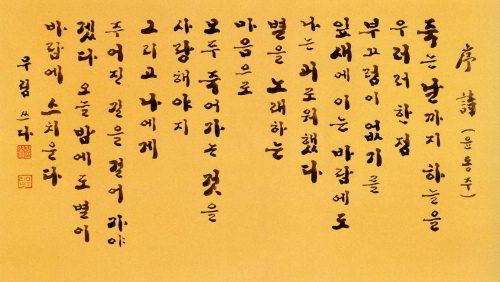 序詩 (윤동주)
죽는 날까지 하늘을
우러러 한점
부끄럼이 없기를
잎새에 이는 바람에도
나는 괴로워했다
별을 노래하는
마음으로
모두 죽어가는 것을
사랑해야지
그리고 나에게
주어진 길을 걸어 가야
겠다 오늘 밤에도 별이
바람에 스치운다
우림 쓰다